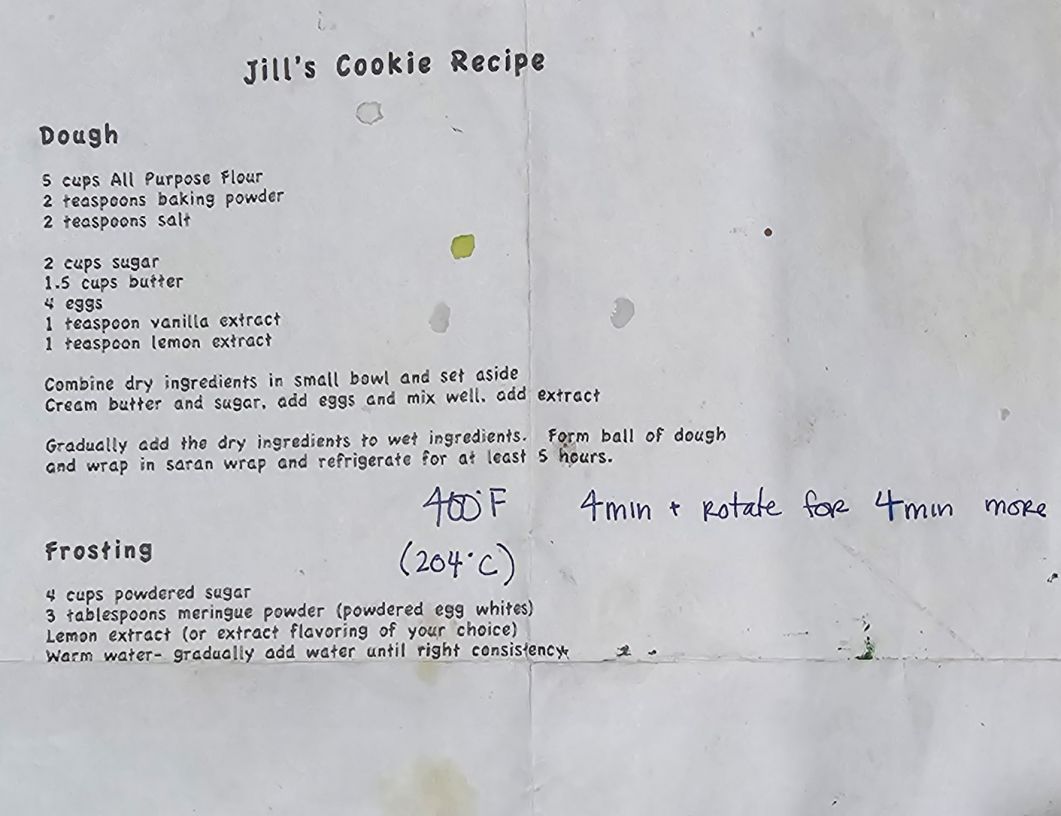 Jill's Cookie Recipe
Dough
5 cups All Purpose Flour
2 teaspoons baking powder
2 teaspoons salt
2 cups sugar
1.5 cups butter
4 eggs
1 teaspoon vanilla extract
1 teaspoon lemon extract
Combine dry ingredients in small bowl and set aside
Cream butter and sugar, add eggs and mix well, add extract
Gradually add the dry ingredients to wet ingredients. Form ball of dough
and wrap in saran wrap and refrigerate for at least 5 hours.
400°F 4min + Rotate for 4min more
(204°C)
Frosting
4 cups powdered sugar
3 tablespoons meringue powder (powdered egg whites)
Lemon extract (or extract flavoring of your choice)
Warm water- gradually add water until right consistency